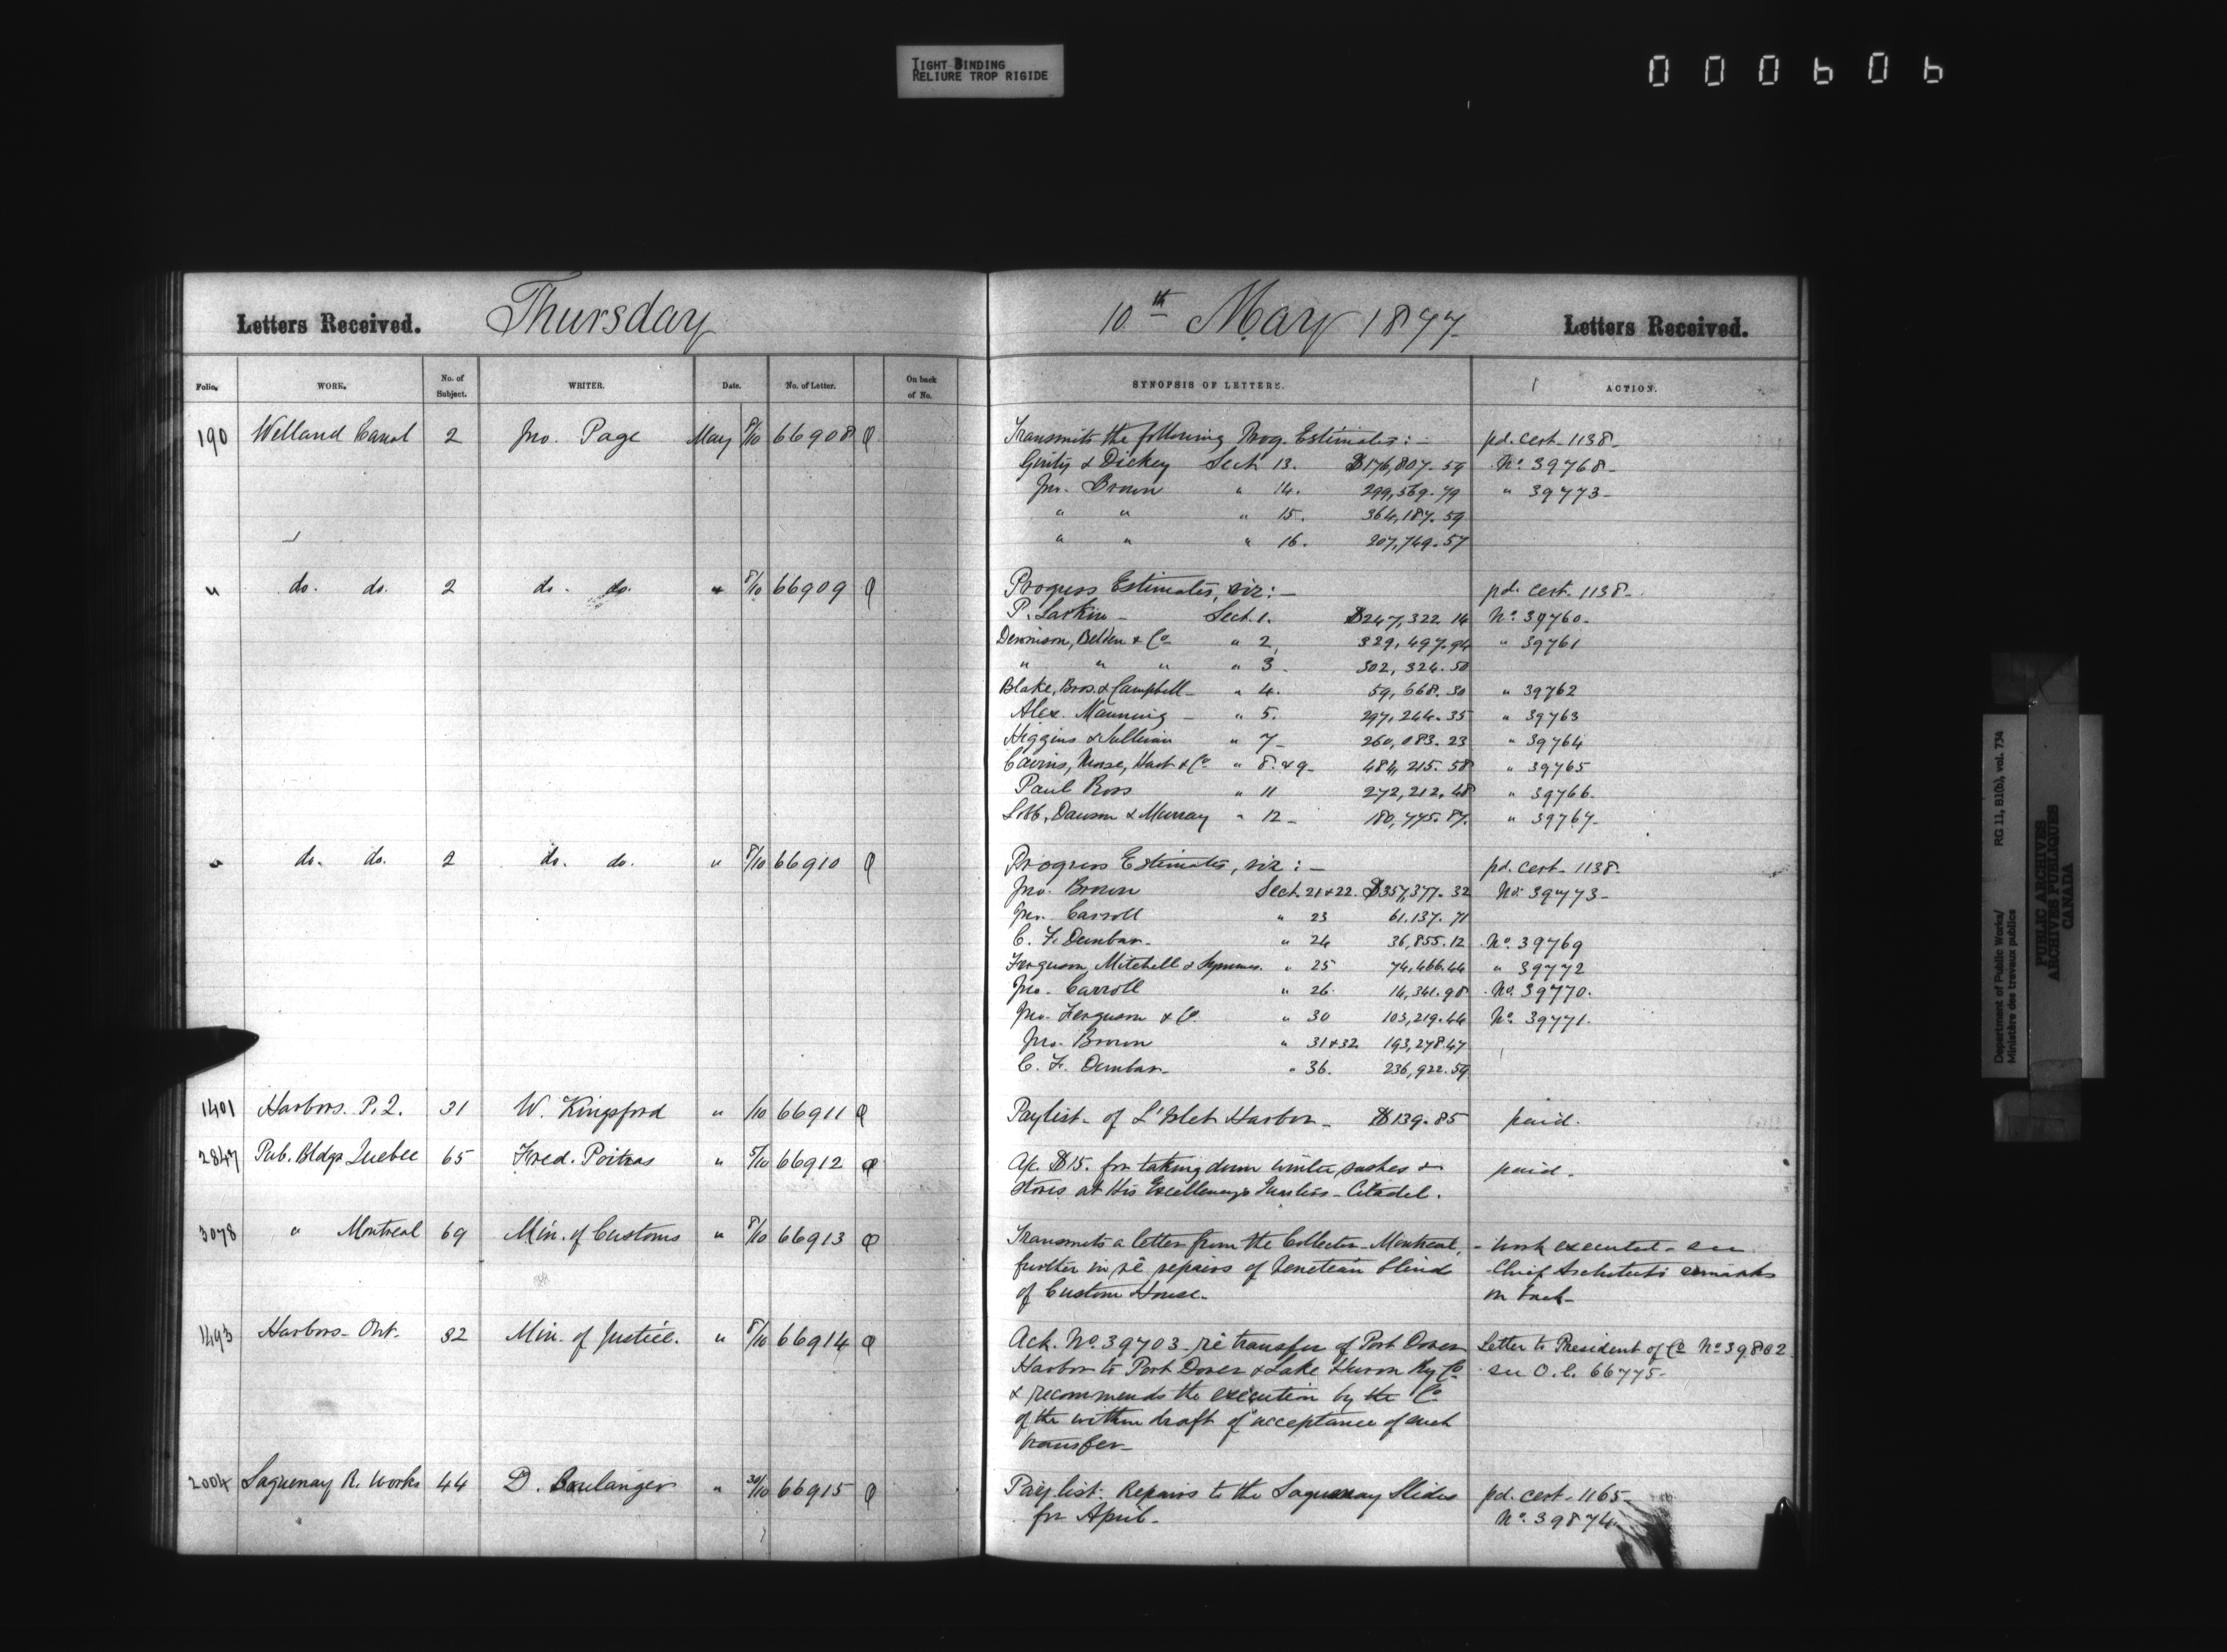 TIGHT BINDING
RELIURE TROP RIGIDE
000606
Letters Received. Thursday 10th May 1877 Letters Received.
Folio. WORK. No. of Subject. WRITER. Date. No. of Letter. On back of No. SYNOPSIS OF LETTERS. ACTION.
190 Welland Canal 2 Jno. Page May 8/10 66908 Transmits the following Prog. Estimates:- pd. cert. 1138-
& Dickey Sect. 13. $176,807.59 No. 39768-
Jno. Brown " 14. 299,569.79 " 39773-
" " " 15. 364,187.59
" " " 16. 207,749.57
" do. do. 2 do. do. " 8/10 66909 Progress Estimates, viz:- pd. cert. 1138-
P. Larkin - Sect. 1. $247,322.14 No. 39760-
Dennison, Belden & Co " 2, 329,497.94 " 39761
" " " " 3- 302,324.50
Blake, Bros. & Campbell- " 4. 59,668.30 " 39762
Alex. Manning - " 5. 297,244.35 " 39763
Higgins & Sullivan " 7- 260,083.23 " 39764
Cairns, Morse, Hart & Co " 8. & 9- 484,215.58 " 39765
Paul Ross " 11 272,212.48 " 39766-
Dawson & Murray " 12- 180,775.87. " 39767-
" do. do. 2 do. do. " 8/10 66910 Progress Estimates, viz:- pd. cert. 1138-
Jno. Brown Sect. 21+22. $357,377.32 No. 39773-
Jno. Carroll " 23 61.137.71
C. F. Dunbar- " 24 36,855.12 No. 39769
Ferguson, Mitchell & Symmes. " 25 74,466.44 " 39772
Jno. Carroll " 26. 14,341.98 No. 39770.
Jno. Ferguson & Co. " 30 103,219.44 No. 39771.
Jno. Brown " 31+32 193,278.47
C. F. Dunbar- " 36. 236,922.59
1401 Harbors. P.Q. 31 W. Kingsford " /10 66911 Paylist- of L'Islet Harbor- $139.85 paid.
2847 Pub. Bldgs Quebec 65 Fred. Poitras " 5/10 66912 A/c. $15. for taking down winter sashes &
stoves at His Excellency's Quarters- Citadel. paid-
3078 " Montreal 69 Min. of Customs " 8/10 66913 Transmits a letter from the Collector Montreal, - Work executed- see
further in re repairs of Venetian blinds Chief Architect's remarks
of Custom House- on back-
1493 Harbors- Ont. 32 Min. of Justice. " 8/10 66914 Ack. No. 39703- re transfer of Port Dover Letter to President of Co No. 39802
Harbor to Port Dover & Lake Huron Ry Co. see O.C. 66775-
& recommends the execution by the Co
of the within draft of acceptance of such
transfer-
2004 Saguenay R. Works 44 D. Boulanger " 30/10 66915 Pay list- Repairs to the Saguenay Slides pd. cert. 1165-
for April- No. 39874
Department of Public Works/
Ministère des travaux publics
RG 11, B1(b), vol. 734
PUBLIC ARCHIVES
ARCHIVES PUBLIQUES
CANADA